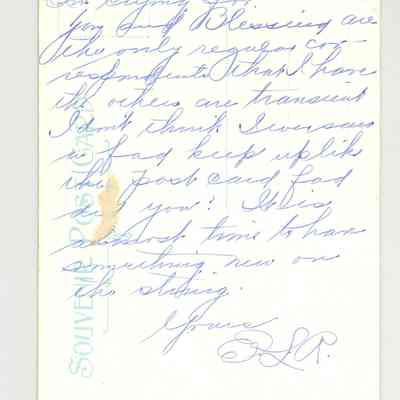 You and Blessing are
the only regular cor-
respondents that I have
the others are transient
I don't think I ever saw
a fad keep up like
the post card fad
did you? It is
almost time to have
something new on
the string.
Yours
SOUVENIR POST CARD